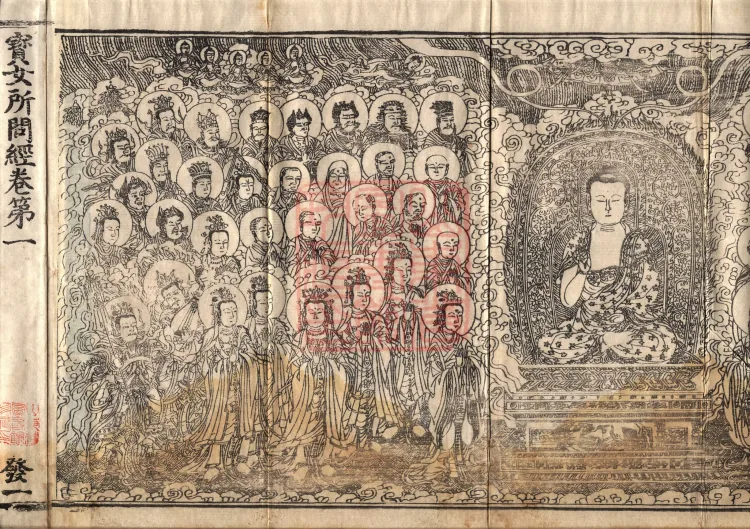 寳女所問經卷第一
發一